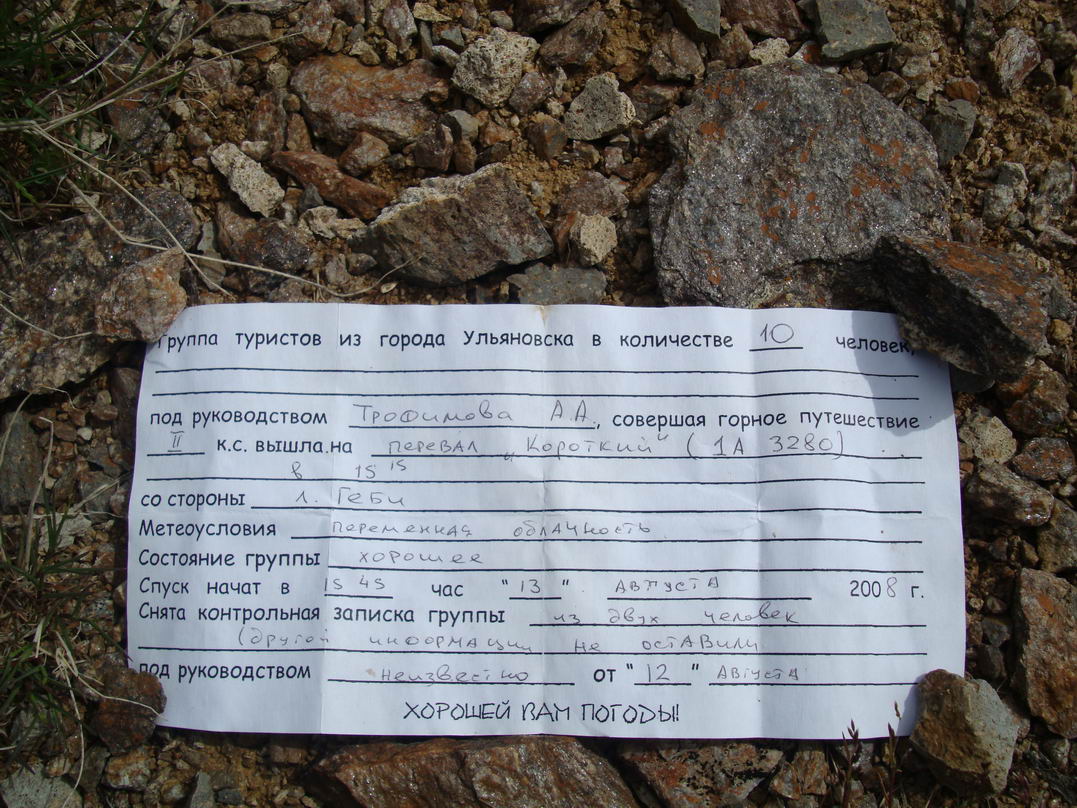 Группа туристов из города Ульяновска в количестве 10 человек,
под руководством Трофимова А.А., совершая горное путешествие
II к.с. вышла на перевал „Короткий" (1А 3280)
в 15 15
со стороны л. Геби
Метеоусловия переменная облачность
Состояние группы хорошее
Спуск начат в 15 45 час "13" августа 2008 г.
Снята контрольная записка группы из двух человек
(другой информации не оставили
под руководством неизвестно от "12" августа
ХОРОШЕЙ ВАМ ПОГОДЫ!!